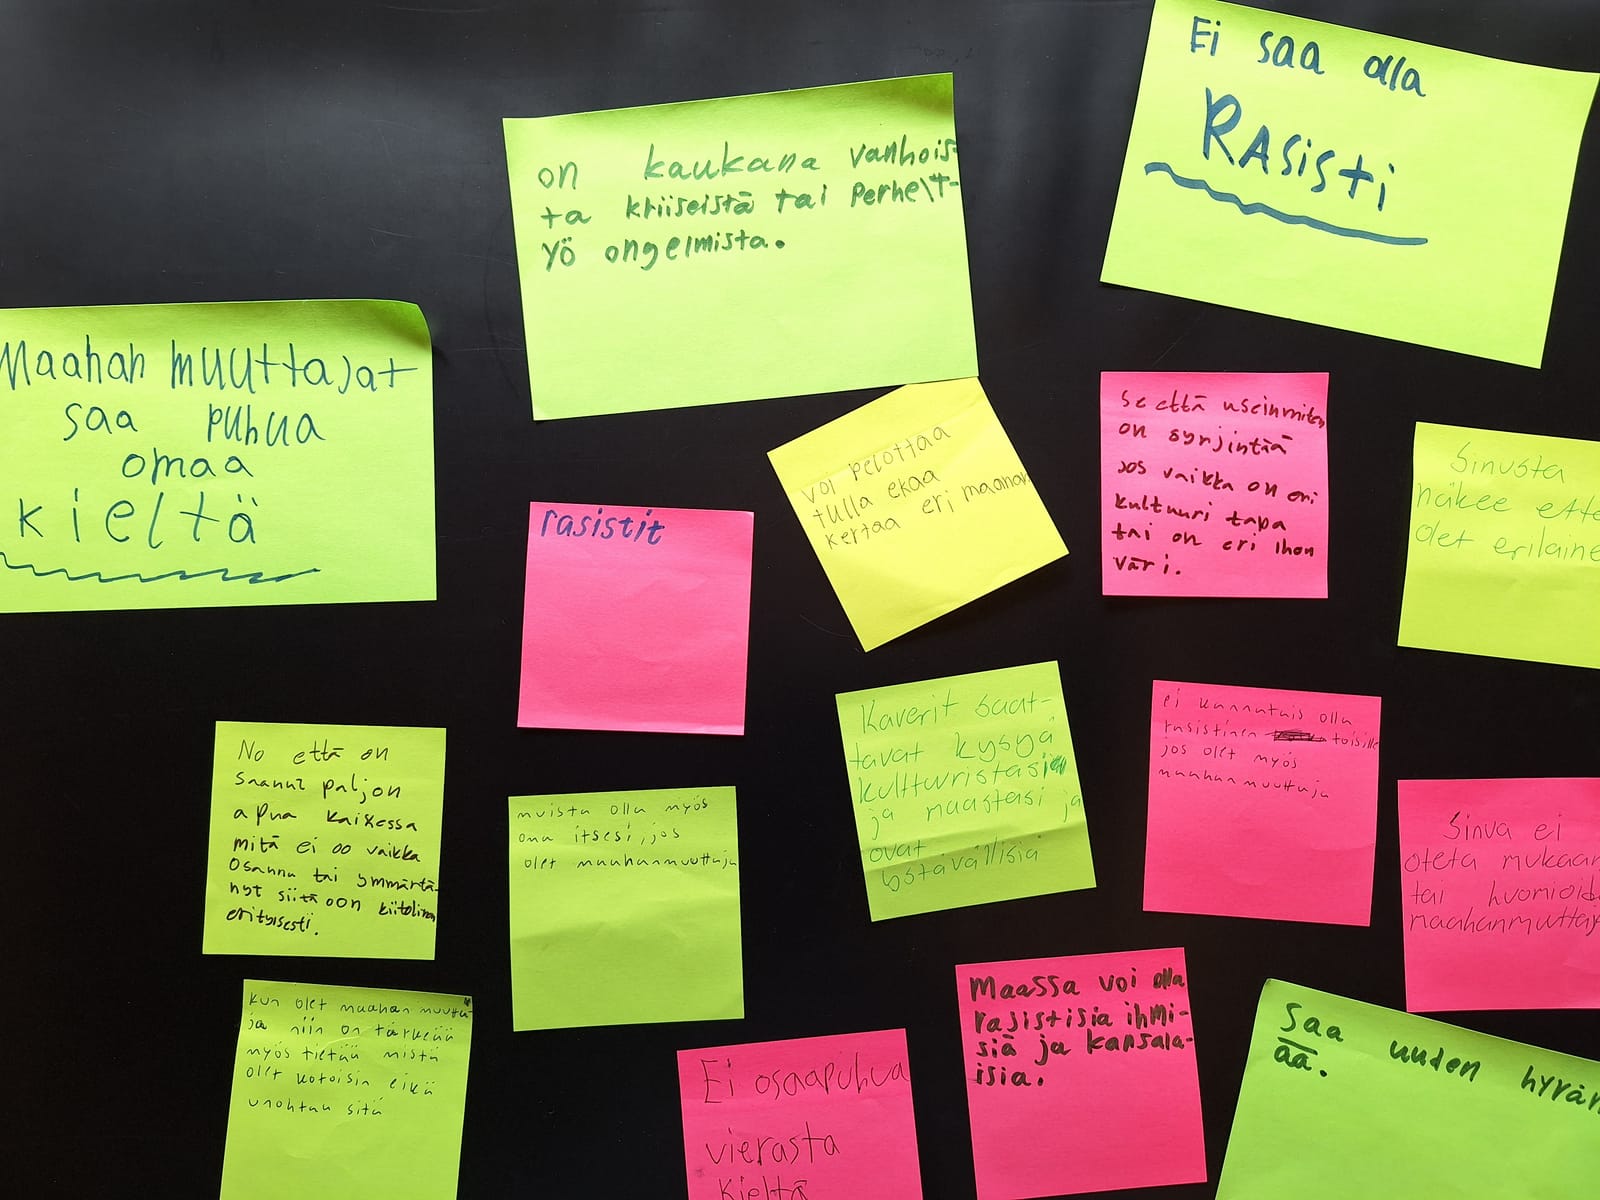 Ei saa olla
RASisti
on kaukana vanhois-
ta kriiseistä tai perhe\t-
yö ongelmista.
Maahan muuttajat
saa puhua
omaa
kieltä
se että useinmiten
on syrjintää
jos vaikka on eri
kultuuri tapa
tai on eri ihon
väri.
voi pelottaa
tulla ekaa
kertaa eri maahan
Sinusta
näkee että
olet erilaine
rasistit
Kaverit saat-
tavat kysyä
kultturistasi
ja maastasi ja
ovat
ystävällisiä
ei kannatais olla
rasistinen toisille
jos olet myös
maahanmuuttaja
No että on
saanut paljon
apua kaikessa
mitä ei oo vaikka
osannu tai ymmärtä-
nyt siitä oon kiitolinen
erityisesti.
muista olla myös
oma itsesi, jos
olet maahanmuuttaja
Sinua ei
oteta mukaan
tai huomioida
maahanmuttaj
Maassa voi olla
rasistisia ihmi-
siä ja kansala-
isia.
Kun olet maahan muutta-
ja niin on tärkeää
myös tietää mistä
olet kotoisin eikä
unohtaa sitä
Saa uuden hyvän
ää.
Ei osaapuhua
vierasta
kieltä